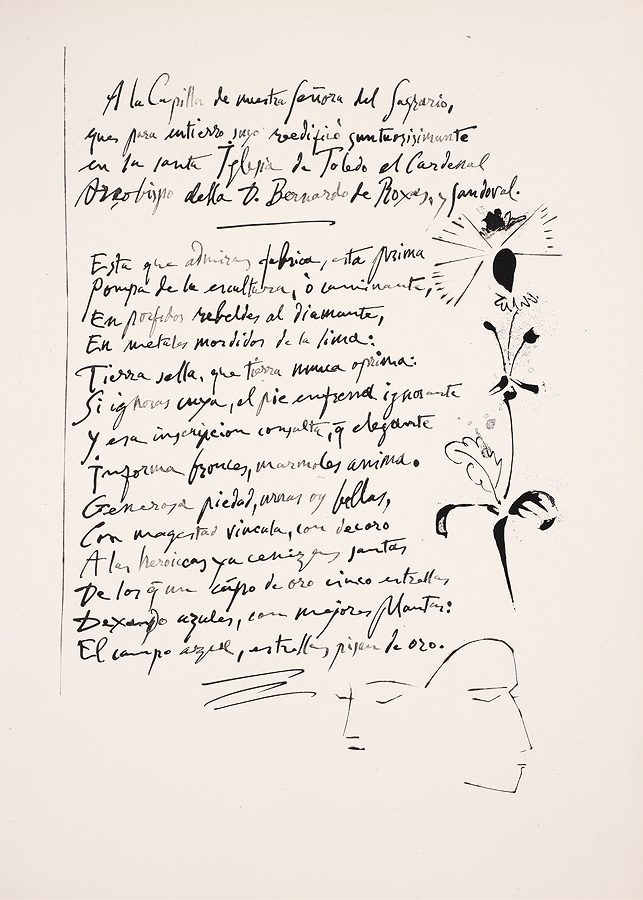 A la Capilla de nuestra Señora del Sagrario,
que para entierro suyo reedificò suntuosisimante
en la santa Iglesia de Toledo el Cardenal
Arçobispo della D. Bernardo de Roxas, y Sandoval.
Esta que admiras fabrica, esta prima
Pompa de la escultura, ò caminante,
En porfidos rebeldes al diamante,
En metales mordidos de la lima:
Tierra sella, que tierra nunca oprima:
Si ignoras cuya, el pie enfrena ignorante
Y esa inscripcion consulta, q̃ elegante
Informa bronces, marmoles anima.
Generosa piedad, urnas oy bellas,
Con magestad vincula, con decoro
A las heroiccas ya cenizas santas
De los q̃ un cãpo de oro cinco estrellas
Dexando azules, con mejores Plantas:
El campo azul, estrellas pisan de oro.